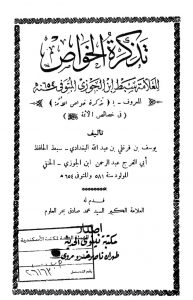 تذكرة الخواص
للعلامة سبط ابن الجوزي المتوفى ٦٥٤ هـ
المعروف بـ (تذكرة خواص الأمة)
في خصائص الأئمة
تأليف
يوسف بن فرغلي بن عبد الله البغدادي - سبط الحافظ
أبي الفرج عبد الرحمن ابن الجوزي - الحنفي
المولود سنة ٥٨١ والمتوفى ٦٥٤ هـ
قدم له
العلامة الكبير السيد محمد صادق بحر العلوم
إصدار
مكتبة نينوى الحديثة
طهران ناصر خسرو مروي